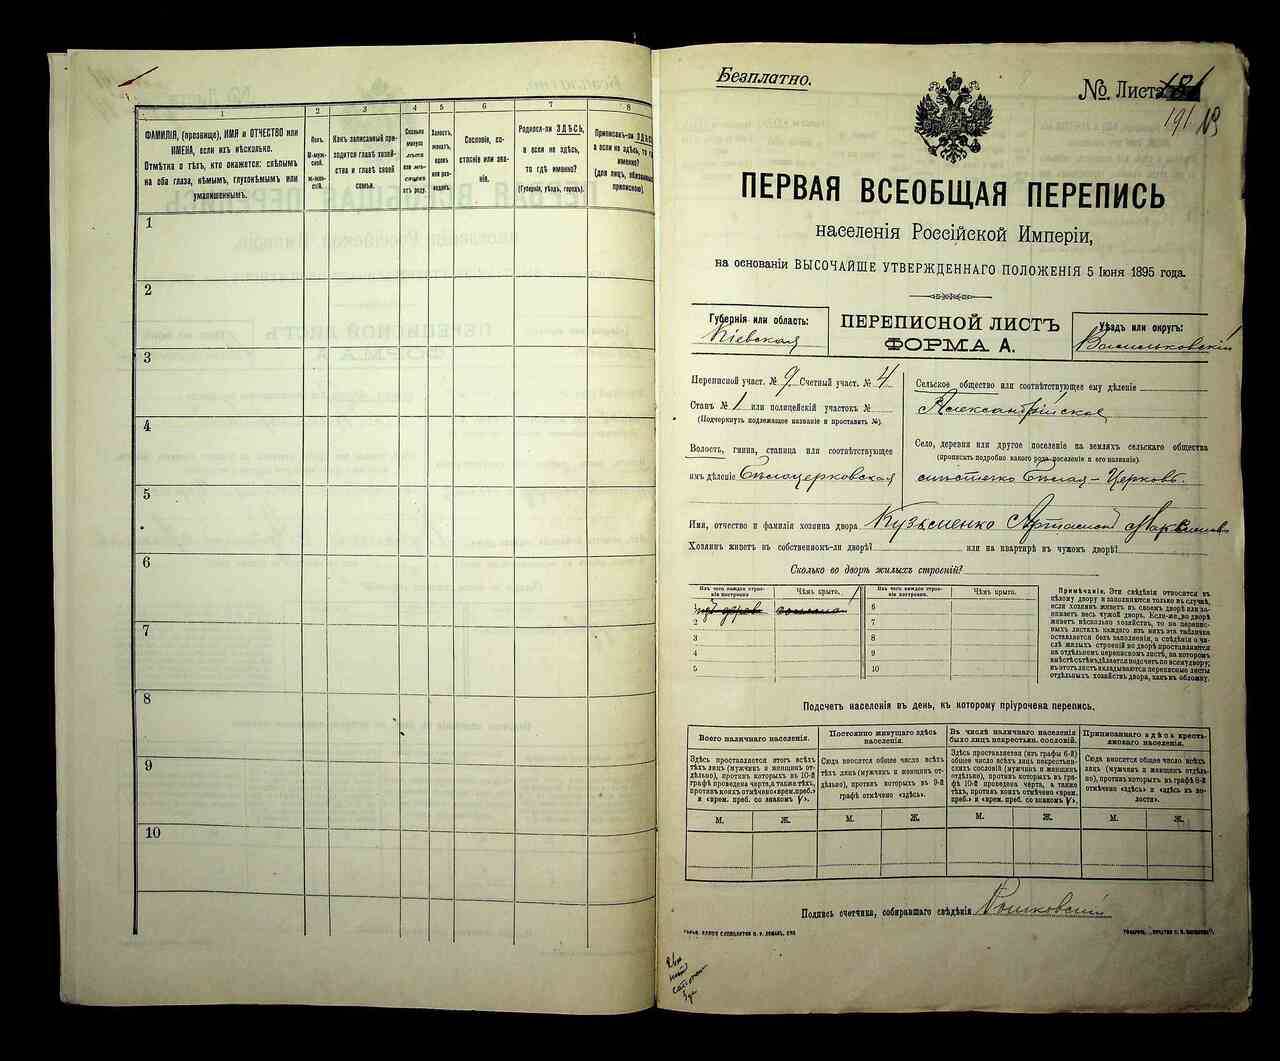 1
2
3
4
5
6
7
8
ФАМИЛІЯ, (прозвище), ИМЯ и ОТЧЕСТВО или
ИМЕНА, если ихъ нѣсколько.
Отмѣтка о тѣхъ, кто окажется: слѣпымъ
на оба глаза, нѣмымъ, глухонѣмымъ или
умалишеннымъ.
Полъ.
М-муж-
ской.
Ж-жен-
скій.
Какъ записанный при-
ходится главѣ хозяй-
ства и главѣ своей
семьи.
Сколько
минуло
лѣтъ
или мѣ-
сяцевъ
отъ роду.
Холостъ,
женатъ,
вдовъ
или раз-
веденъ.
Сословіе, со-
стояніе или зва-
ніе.
Родился-ли ЗДѢСЬ,
а если не здѣсь,
то гдѣ именно?
(Губернія, уѣздъ, городъ).
Приписанъ-ли ЗДѢСЬ
а если не здѣсь, то г
именно?
(для лицъ, обязанныхъ
припискою)
1
2
3
4
5
6
7
8
9
10
Безплатно.
№ Листа
191
ПЕРВАЯ ВСЕОБЩАЯ ПЕРЕПИСЬ
населенія Россійской Имперіи,
на основаніи ВЫСОЧАЙШЕ УТВЕРЖДЕННАГО ПОЛОЖЕНІЯ 5 Іюня 1895 года.
Губернія или область:
Кіевская
ПЕРЕПИСНОЙ ЛИСТЪ
ФОРМА А.
Уѣздъ или округъ:
Васильковскій
Переписной участ. № 9 Счетный участ. № 4
Станъ № 1 или полицейскій участокъ №
(Подчеркнуть подлежащее названіе и проставить №).
Волость, гмина, станица или соотвѣтствующее
имъ дѣленіе Бѣлоцерковская
Сельское общество или соотвѣтствующее ему дѣленіе
Александрійское
Село, деревня или другое поселеніе на земляхъ сельскаго общества
(прописать подробно какого рода поселеніе и его названіе).
мѣстечко Бѣлая-Церковь.
Имя, отчество и фамилія хозяина двора Кузьменко
Хозяинъ живетъ въ собственномъ-ли дворѣ? или на квартирѣ въ чужомъ дворѣ?
Сколько во дворѣ жилыхъ строеній?
Изъ чего каждое строе-
ніе построено
Чѣмъ крыто.
Изъ чего каждое строе-
ніе построено.
Чѣмъ крыто.
изъ дерев солома
2
3
4
5
6
7
8
9
10
Примѣчаніе. Эти свѣдѣнія относятся къ
цѣлому двору и заполняются только въ случаѣ,
если хозяинъ живетъ въ своемъ дворѣ или за-
нимаетъ весь чужой дворъ. Если-же во дворѣ
живетъ нѣсколько хозяйствъ, то на перепис-
ныхъ листахъ каждаго изъ нихъ эта табличка
оставляется безъ заполненія, а свѣдѣнія о чи-
слѣ жилыхъ строеній во дворѣ проставляются
на отдѣльномъ переписномъ листѣ, на которомъ
вмѣстѣ съ тѣмъ дѣлается подсчетъ по всему двору;
въ этотъ листъ вкладываются переписные листы
отдѣльныхъ хозяйствъ двора, какъ въ обложку.
Подсчетъ населенія въ день, къ которому пріурочена перепись.
Всего наличнаго населенія.
Постоянно живущаго здѣсь
населенія.
Въ числѣ наличнаго населенія
было лицъ некрестьян. сословій.
Приписаннаго здѣсь кресть-
янскаго населенія.
Здѣсь проставляется итогъ всѣхъ
тѣхъ лицъ (мужчинъ и женщинъ от-
дѣльно), противъ которыхъ въ 10-й
графѣ проведена черта, а также тѣхъ,
противъ коихъ отмѣчено «врем. преб.»
и «врем. преб. со знакомъ V».
Сюда вносится общее число всѣхъ
тѣхъ лицъ (мужчинъ и женщинъ от-
дѣльно), противъ которыхъ въ 9-й
графѣ отмѣчено «здѣсь».
Здѣсь проставляется (изъ графы 6-й)
общее число всѣхъ лицъ некрестьян-
скихъ сословій (мужчинъ и женщинъ
отдѣльно), противъ которыхъ въ гра-
фѣ 10-й проведена черта, а также
тѣхъ, противъ коихъ отмѣчено «врем.
преб.» и «врем. преб. со знакомъ V».
Сюда вносится общее число всѣхъ
лицъ (мужчинъ и женщинъ отдѣль-
но), противъ которыхъ въ графѣ 8-й
отмѣчено «здѣсь» и «здѣсь въ во-
лости».
М.
Ж.
М.
Ж.
М.
Ж.
М.
Ж.
Подпись счетчика, собиравшаго свѣдѣнія